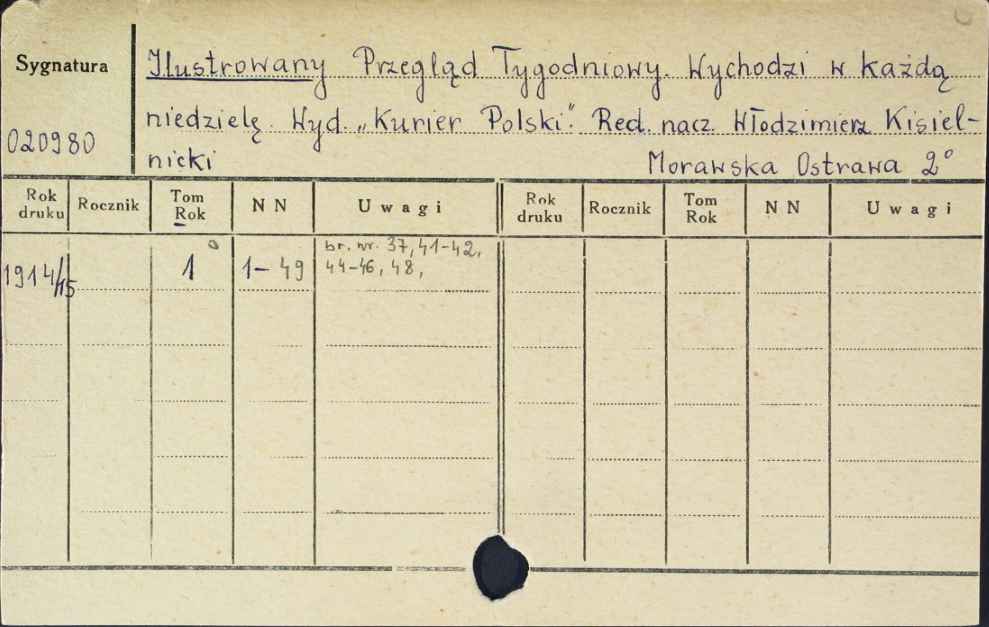 Sygnatura
Ilustrowany Przegląd Tygodniowy. Wychodzi w każdą
niedzielę. Wyd. „Kurier Polski". Red. nacz. Włodzimierz Kisiel-
020980
nicki
Morawska Ostrawa 2°
Rok druku Rocznik Tom Rok NN Uwagi Rok druku Rocznik Tom Rok NN Uwagi
br. nr. 37, 41-42,
1914/15 1 1-49 44-46, 48,